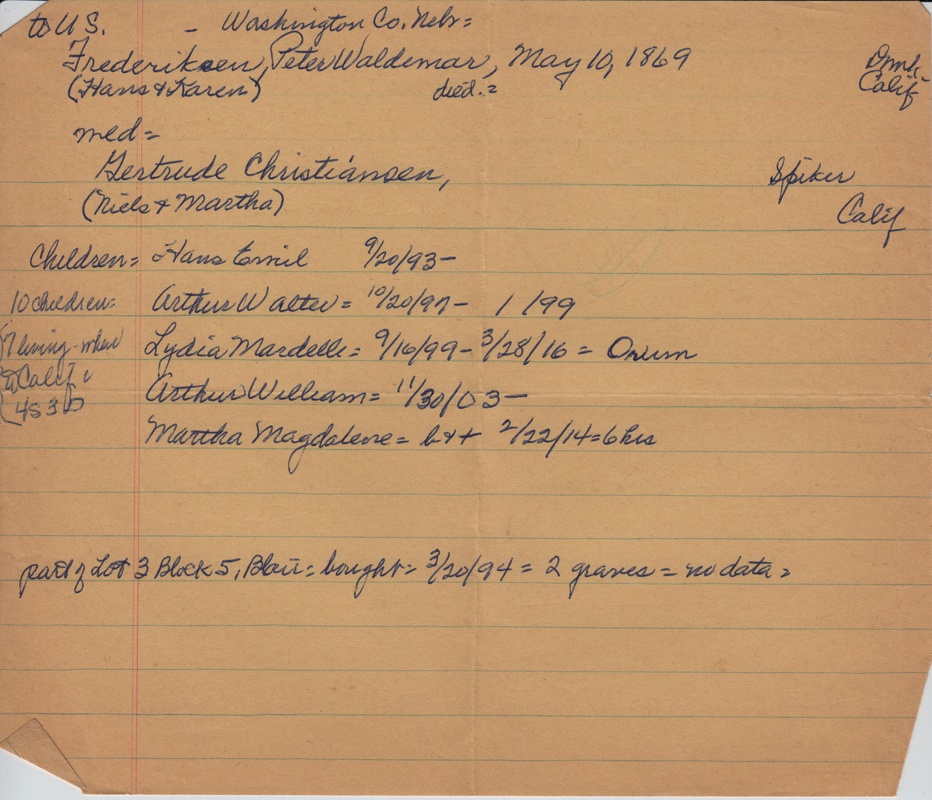 to U.S. - Washington Co. Nebr=
Frederiksen, Peter Waldemar, May 10, 1869 Dmk-
(Hans & Karen) died.= Calif
med=
Gertrude Christiansen, Spiker
(Niels & Martha) Calif
Children= Hans Emil 9/20/93-
10 children= Arthur Walter= 10/20/97- 1/99
(7 living-when Lydia Mardelle= 9/16/99-3/28/16= Orum
to Calif
(4S 3D Arthur William= 11/30/03-
Martha Magdalene= b&+ 2/22/14=6hrs
part of Lot 3 Block 5, Blair= bought= 3/20/94= 2 graves= no data=